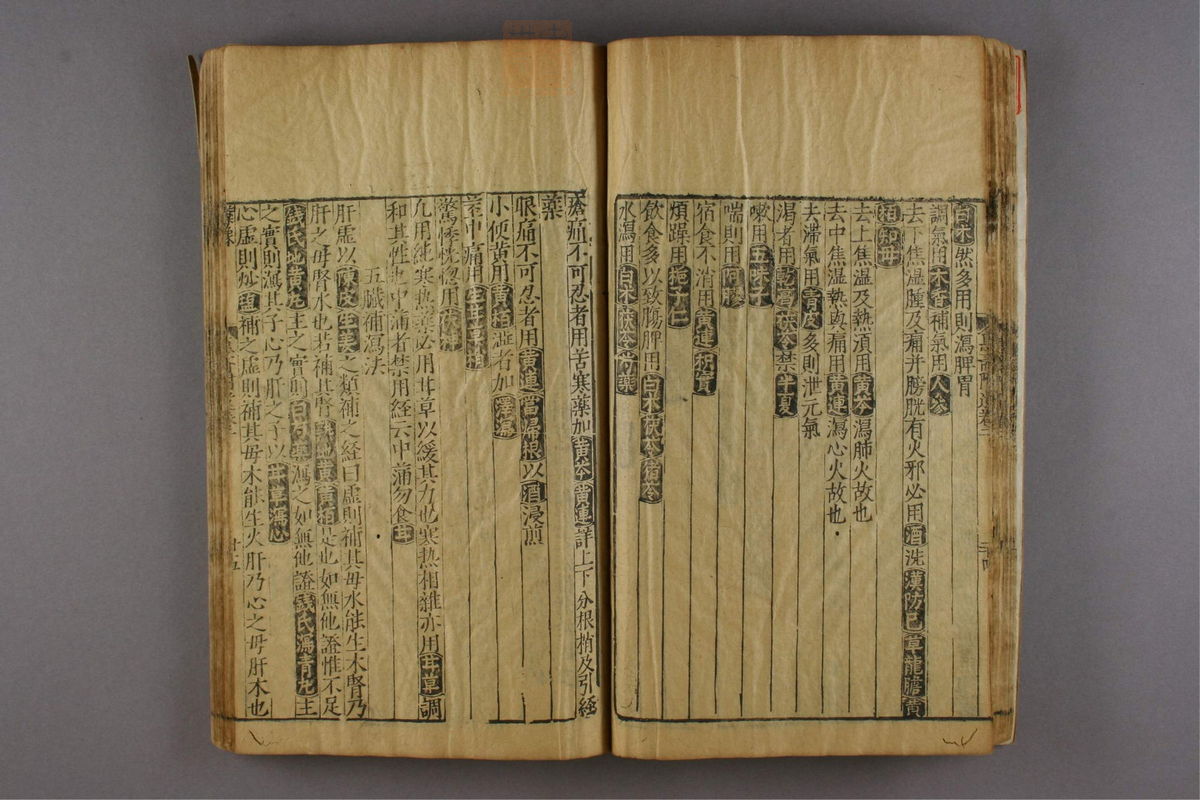 白朮然多用則瀉脾胃
調氣用木香補氣用人参
去下焦濕腫及痛并膀胱有火邪必用酒洗漢防巳草龍膽黄
栢知母
去上焦濕及熱須用黄芩瀉肺火故也
去中焦濕熱與痛用黄連瀉心火故也
去滯氣用青皮多則泄元氣
渇者用乾葛茯苓禁半夏
嗽用五味子
喘則用阿膠
宿食不消用黄連枳實
煩躁用梔子仁
飲食多以致腸脾用白朮茯苓猪苓
水瀉用白朮茯苓芍藥
瘡痛不可忍者用苦寒藥加黄芩黄連詳上下分根梢及引経
藥
眼痛不可忍者用黄連當歸根以酒浸煎
小便黄用黄栢澁者加澤瀉
莖中痛用生甘草梢
驚悸恍惚用茯神
凢用純寒熱藥必用甘草以緩其力也寒热相雜亦用甘草調
和其性也中蒲者禁用経云中蒲勿食甘
五臓補瀉法
肝虚以陳皮生姜之類補之経曰虚則補其毋水能生木腎乃
肝之毋腎水也若補其腎熟地黄黄栢是也如無他證惟不足
錢氏地黄丸主之實則白芍藥瀉之如無他證錢氏瀉青丸主
之實則瀉其子心乃肝之子以甘草瀉心
心虚則炒塩補之虚則補其毋木能生火肝乃心之毋肝木也
十五